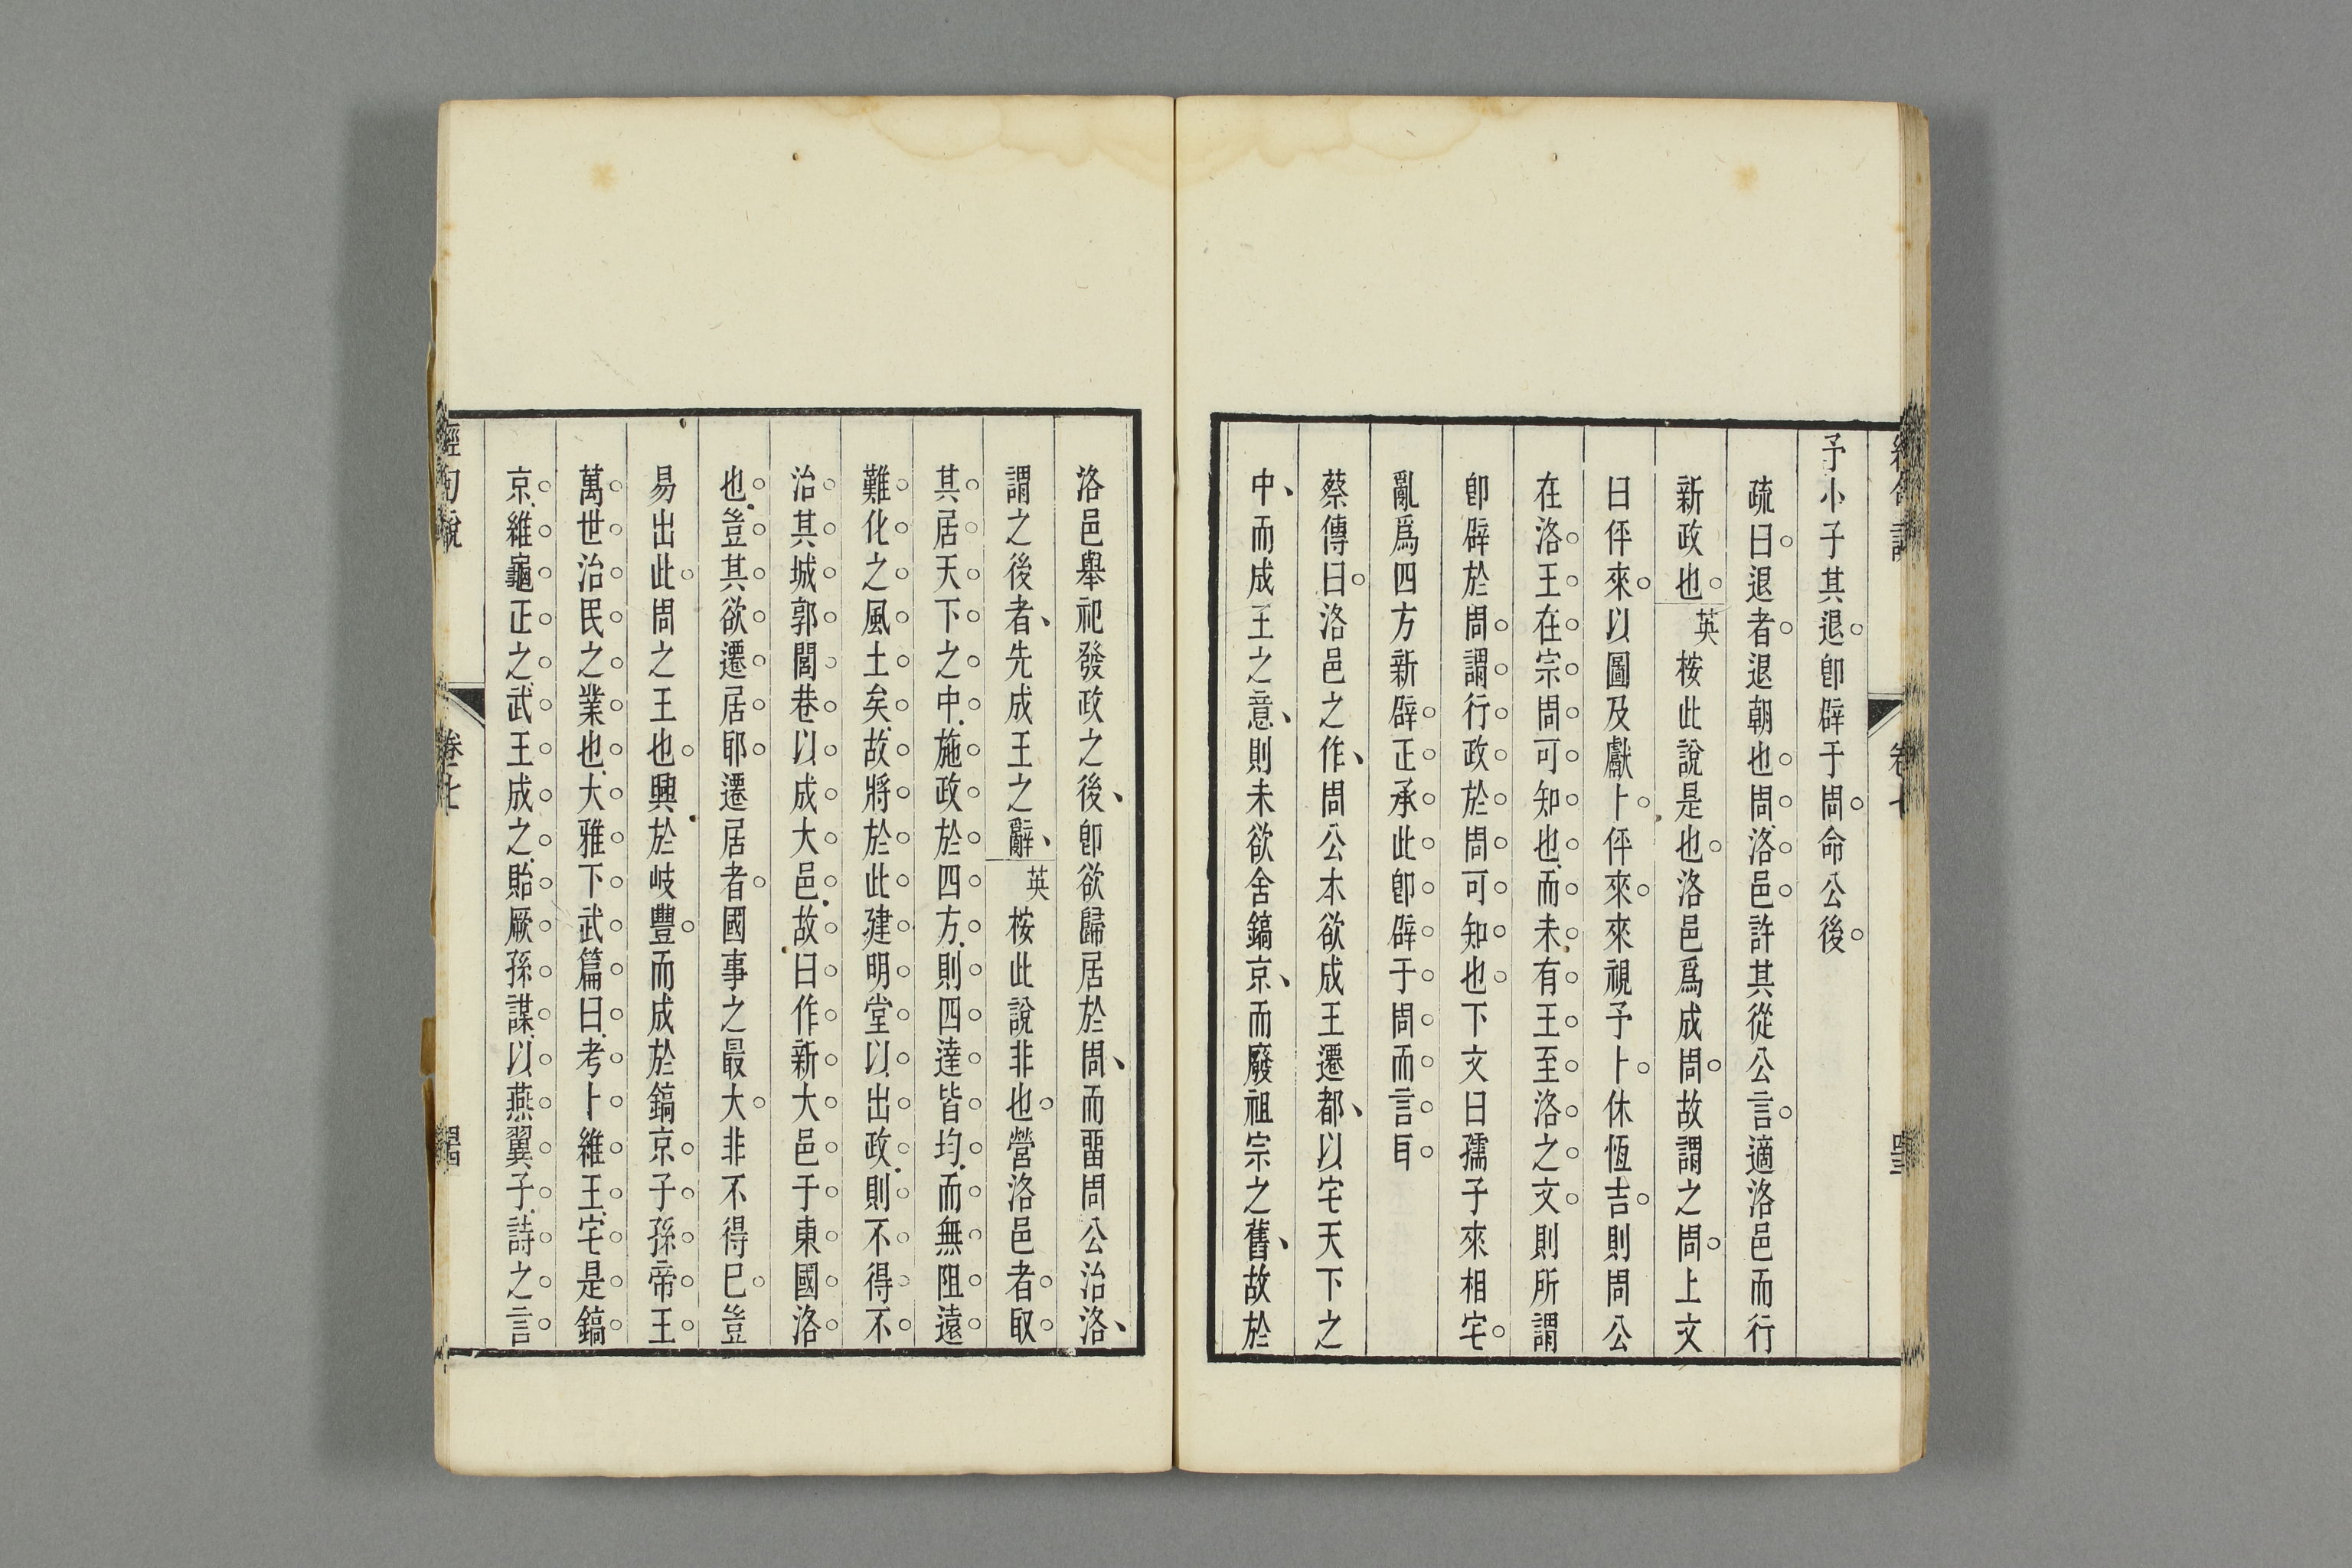 予小子其退卽辟于周命公後
疏曰退者退朝也周洛邑許其從公言適洛邑而行
新政也英桉此說是也洛邑爲成周故謂之周上文
曰伻來以圖及獻卜伻來來視予卜休恆吉則周公
在洛王在宗周可知也而未有王至洛之文則所謂
卽辟於周謂行政於周可知也下文曰孺子來相宅
亂爲四方新辟正承此卽辟于周而言耳
蔡傳曰洛邑之作周公本欲成王遷都以宅天下之
中而成王之意則未欲舍鎬京而廢祖宗之舊故於
洛邑舉祀發政之後卽欲歸居於周而畱周公治洛
謂之後者先成王之辭英桉此說非也營洛邑者取
其居天下之中施政於四方則四達皆均而無阻遠
難化之風土矣故將於此建明堂以出政則不得不
治其城郭閭巷以成大邑故曰作新大邑于東國洛
也豈其欲遷居耶遷居者國事之最大非不得巳豈
易出此周之王也興於岐豐而成於鎬京子孫帝王
萬世治民之業也大雅下武篇曰考卜維王宅是鎬
京維龜正之武王成之貽厥孫謀以燕翼子詩之言
經句說
卷七